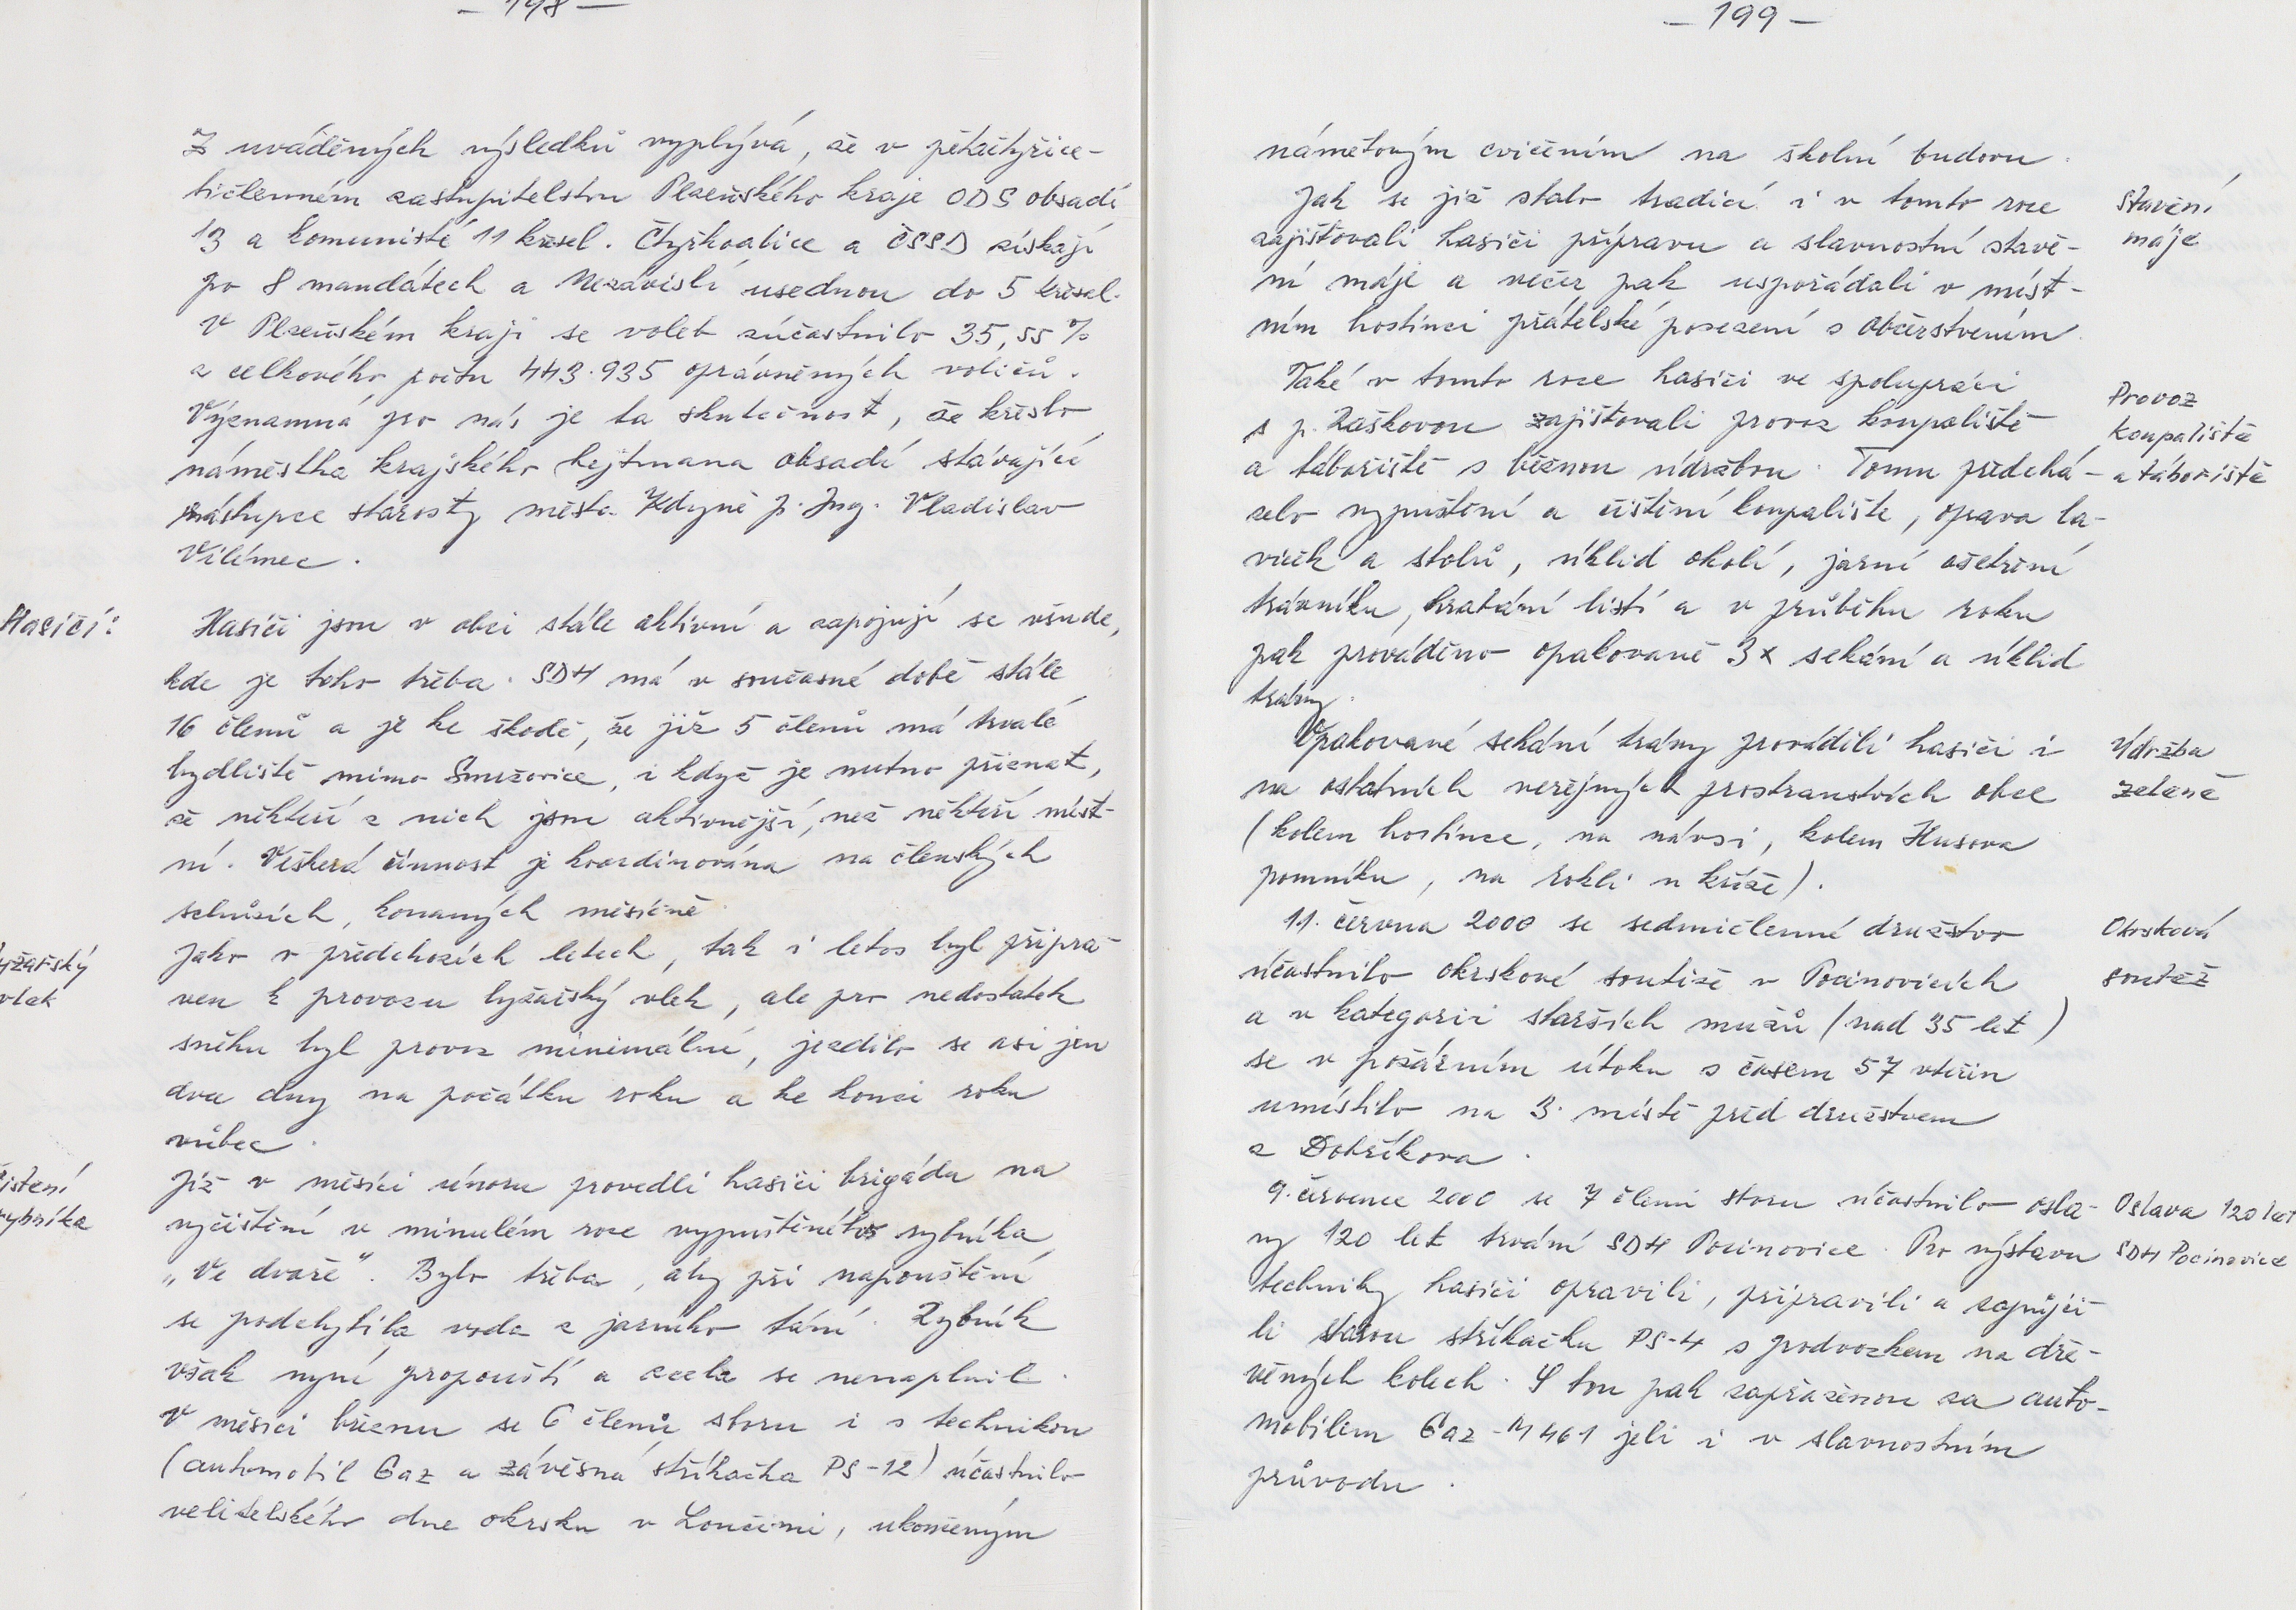 – 198 –
Z uváděných výsledků vyplývá, že v pětačtyřice-
tičlenném zastupitelstvu Plzeňského kraje ODS obsadí
13 a komunisté 11 křesel. Čtyřkoalice a ČSSD získají
po 8 mandátech a Nezávislí usednou do 5 křesel.
V Plzeňském kraji se voleb zúčastnilo 35,55 %
z celkového počtu 443.935 oprávněných voličů.
Významná pro nás je ta skutečnost, že křeslo
náměstka krajského hejtmana obsadí stávající
zástupce starosty města Kdyně p. Ing. Vladislav
Vilímec.
Hasiči:
Hasiči jsou v obci stále aktivní a zapojují se všude,
kde je toho třeba. SDH má v současné době stále
16 členů a je ke škodě, že již 5 členů má trvalé
bydliště mimo Smržovice, i když je nutno přiznat,
že někteří z nich jsou aktivnější, než někteří míst-
ní. Veškerá činnost je koordinována na členských
schůzích, konaných měsíčně.
yžařský
vlek
Jako v předchozích letech, tak i letos byl připra-
ven k provozu lyžařský vlek, ale pro nedostatek
sněhu byl provoz minimální, jezdilo se asi jen
dva dny na počátku roku a ke konci roku
vůbec.
ištění
rybníka
Již v měsíci únoru provedli hasiči brigádu na
vyčištění v minulém roce vypuštěného rybníka
„Ve dvoře". Bylo třeba, aby při napouštění
se podchytila voda z jarního tání. Rybník
však nyní propouští a zcela se nenaplnil.
V měsíci březnu se 6 členů sboru i s technikou
(automobil Gaz a závěsná stříkačka PS-12) účastnilo
velitelského dne okrsku v Loučimi, ukončeným
– 199 –
námětovým cvičením na školní budovu.
Stavění
máje
Jak se již stalo tradicí i v tomto roce
zajišťovali hasiči přípravu a slavnostní stavě-
ní máje a večer pak uspořádali v míst-
ním hostinci přátelské posezení s občerstvením.
Provoz
koupaliště
a tábořiště
Také v tomto roce hasiči ve spolupráci
s p. Raškovou zajišťovali provoz koupaliště
a tábořiště s běžnou údržbou. Tomu předchá-
zelo vypuštění a čištění koupaliště, oprava la-
viček a stolů, úklid okolí, jarní ošetření
trávníku, hrabání listí a v průběhu roku
pak prováděno opakovaně 3x sekání a úklid
trávy.
Údržba
zeleně
Opakované sekání trávy prováděli hasiči i
na ostatních veřejných prostranstvích obce
(kolem hostince, na návsi, kolem Husova
pomníku, na Rokli u kříže).
Okrsková
soutěž
11. června 2000 se sedmičlenné družstvo
účastnilo okrskové soutěže v Pocinovicích
a v kategorii starších mužů (nad 35 let)
se v požárním útoku s časem 57 vteřin
umístilo na 3. místě před družstvem
z Dobříkova.
Oslava 120 let
SDH Pocinovice
9. července 2000 se 7 členů sboru účastnilo osla-
vy 120 let trvání SDH Pocinovice. Pro výstavu
techniky hasiči opravili, připravili a zapůjči-
li starou stříkačku PS-4 s podvozkem na dře-
věných kolech. S tou pak zapřaženou za auto-
mobilem Gaz-M461 jeli i v slavnostním
průvodu.